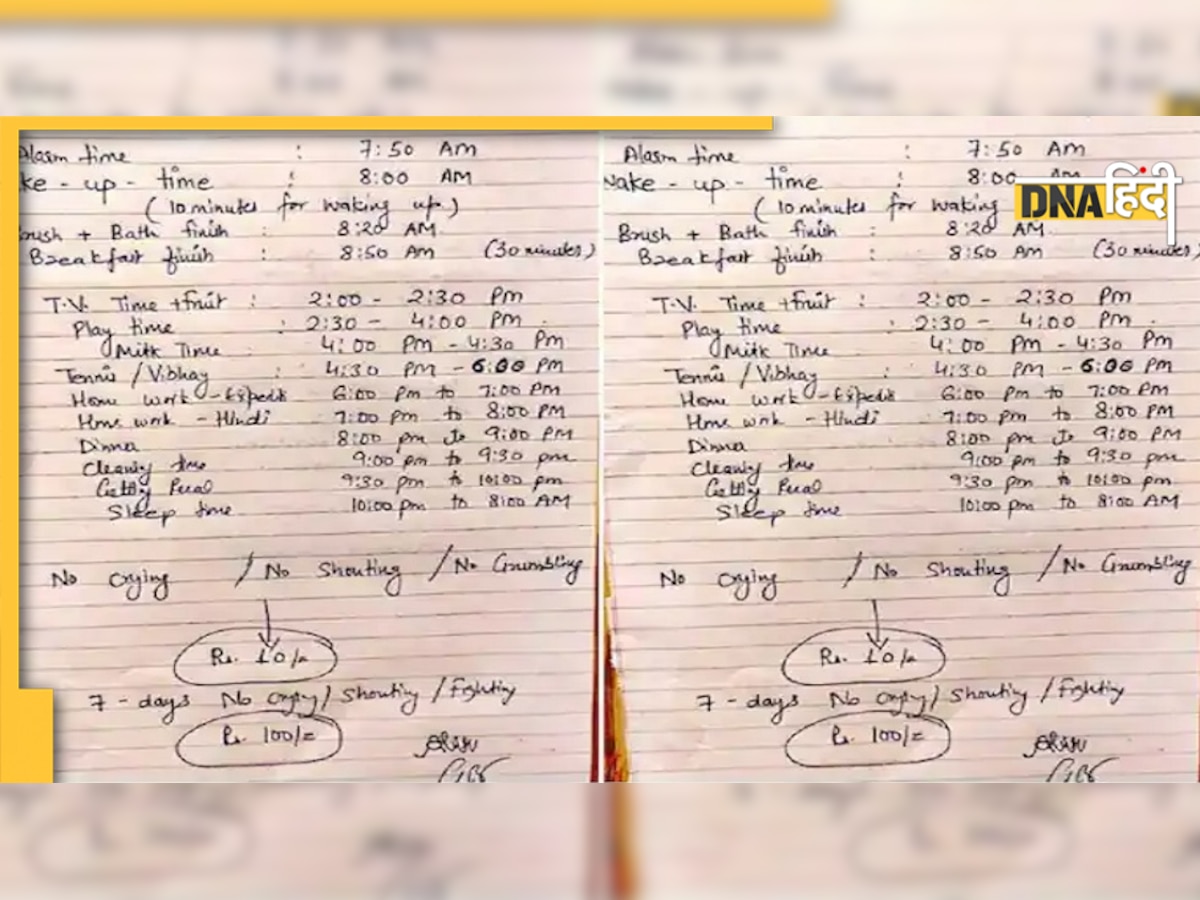 Alarm time : 7:50 AM
ke - up - time : 8:00 AM
(10 minutes for waking up)
Brush + Bath finish : 8:20 AM
Breakfast finish : 8:50 AM (30 minutes)
T.V. Time + fruit : 2:00 - 2:30 PM
Play time : 2:30 - 4:00 PM
Milk Time 4:00 PM - 4:30 PM
Tennis / Vibhay : 4:30 PM - 6:00 PM
Home work - 6:00 PM to 7:00 PM
Home work - Hindi 7:00 PM to 8:00 PM
Dinner 8:00 pm to 9:00 PM
Cleaning time 9:00 pm to 9:30 pm
9:30 pm to 10:00 pm
Sleep time 10:00 pm to 8:00 AM
No crying / No Shouting / No Grumbling
Rs. 10/-
7 - days No crying / Shouting / Fighting
Rs. 100/=
Alarm time : 7:50 AM
Wake - up - time : 8:00 AM
(10 minutes for waking
Brush + Bath finish : 8:20 AM
Breakfast finish : 8:50 AM (30 minutes)
T.V. Time + fruit : 2:00 - 2:30 PM
Play time : 2:30 - 4:00 PM
Milk Time 4:00 PM - 4:30 PM
Tennis / Vibhay : 4:30 PM - 6:00 PM
Home work - 6:00 PM to 7:00 PM
Home work - Hindi 7:00 PM to 8:00 PM
Dinner 8:00 pm to 9:00 PM
Cleaning time 9:00 pm to 9:30 pm
9:30 pm to 10:00 pm
Sleep time 10:00 pm to 8:00 AM
No crying / No Shouting / No Grumbling
Rs. 10/-
7 - days No crying / Shouting / Fighting
Rs. 100/=
DNA हिंदी